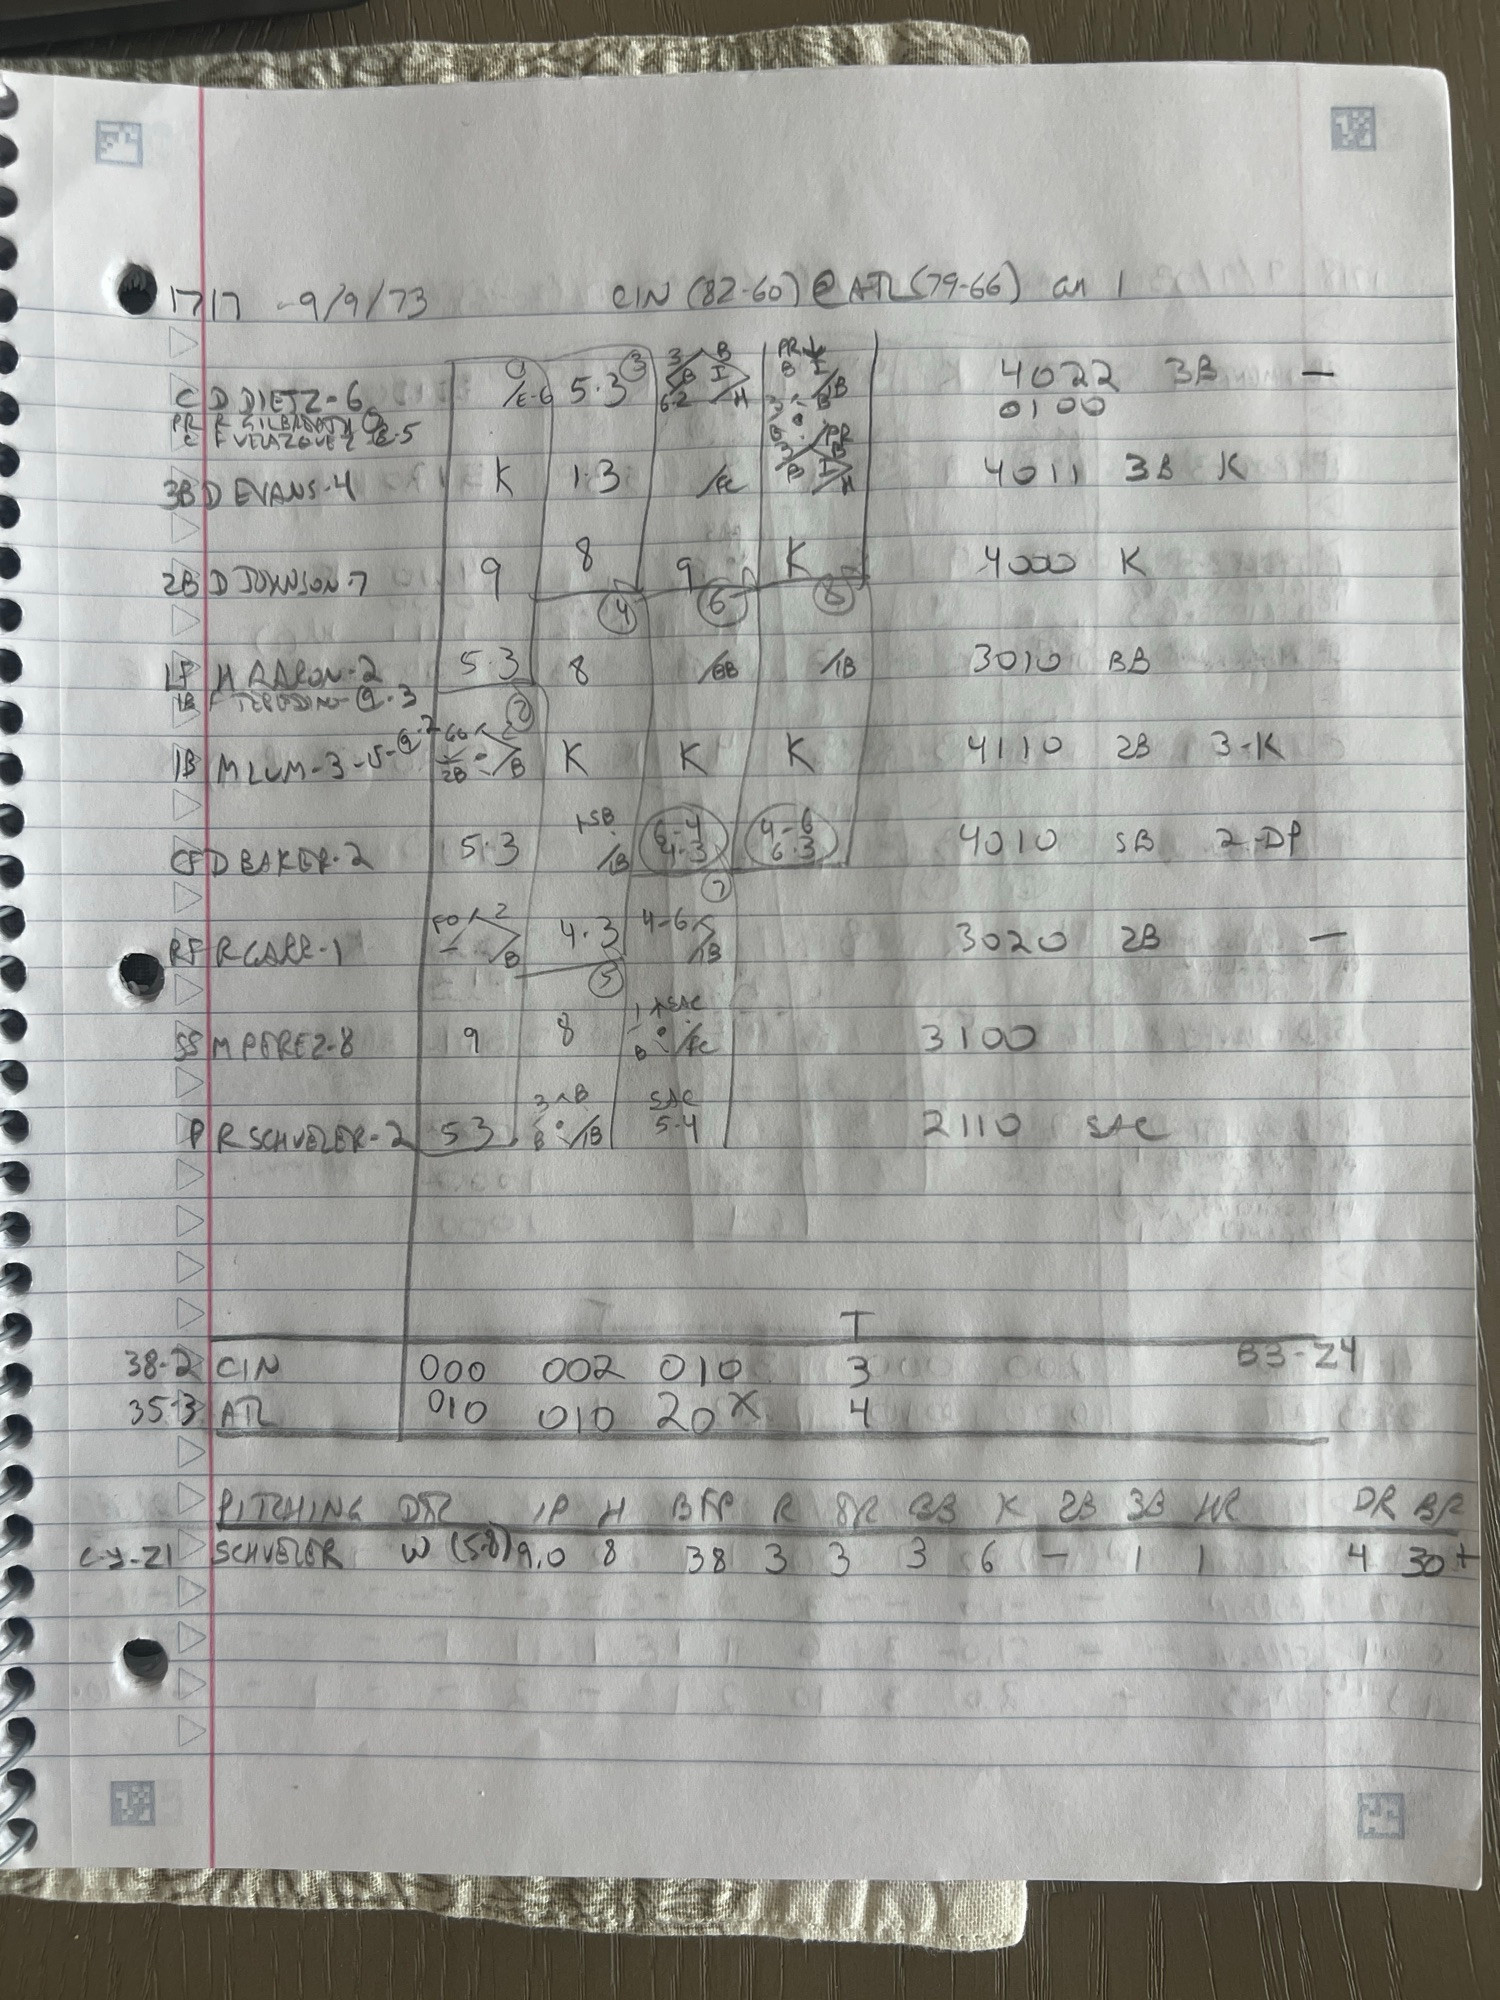 1717 - 9/9/73 CIN (82-60) @ ATL (79-66) GM 1
C D DIETZ-6 /E-6 5-3 ③ 3 B B I 6-2 /H PR B I /1B 4022 3B —
PR R 3 B 0100
C F VELAZQUEZ B /PR
3B D EVANS-4 K 1-3 /FC 3 B B I /H 4011 3B K
2B D JOHNSON-7 9 8 9 K 4000 K
④ ⑥ ⑧
LF H AARON-2 5-3 8 /BB /1B 3010 BB
1B F ②
1B M LUM-3 2B /B K K K 4110 2B 3-K
CF D BAKER-2 5-3 +SB /1B 6-4 4-3 4-6 6-3 4010 SB 2-DP
⑦
RF R GARR-1 2 /B 4-3 4-6 /1B 3020 2B —
⑤
SS M PEREZ-8 9 8 1 +SAC B /FC 3100
P R SCHUELER-2 53 3 B B /1B SAC 5-4 2110 SAC
T
38-2 CIN 000 002 010 3 B3-Z4
35-3 ATL 010 010 20X 4
PITCHING DTL IP H BFP R ER BB K 2B 3B HR DR BR
C-Y-Z1 SCHUELER W (5-8) 9.0 8 38 3 3 3 6 — 1 1 4 30+